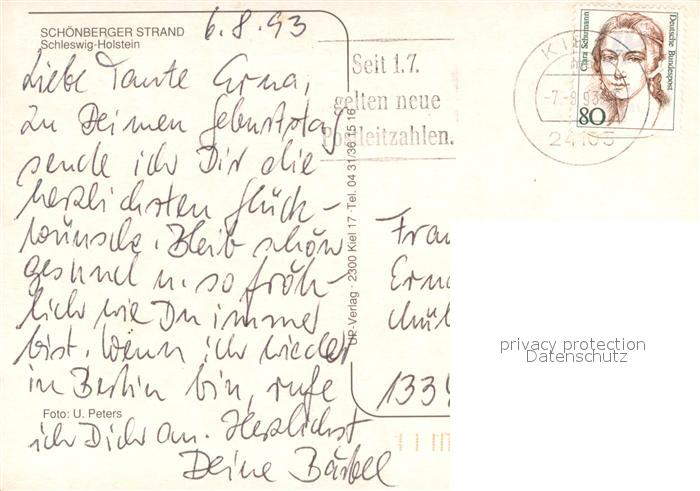 SCHÖNBERGER STRAND
Schleswig-Holstein
6.8.93
Liebe Tante Erna,
zu Deinem Geburtstag
sende ich Dir die
herzlichsten Glück-
wünsche. Bleib schön
gesund u. so fröh-
lich wie Du immer
bist. Wenn ich wieder
in Berlin bin, rufe
ich Dich an. Herzlichst
Deine Bärbel
Foto: U. Peters
UP-Verlag · 2300 Kiel 17 · Tel. 04 31/36 15 16
Seit 1.7.
gelten neue
Postleitzahlen.
-7.-8.93
24103
Clara Schumann
Deutsche Bundespost
80
Frau
Erna
1335
privacy protection
Datenschutz